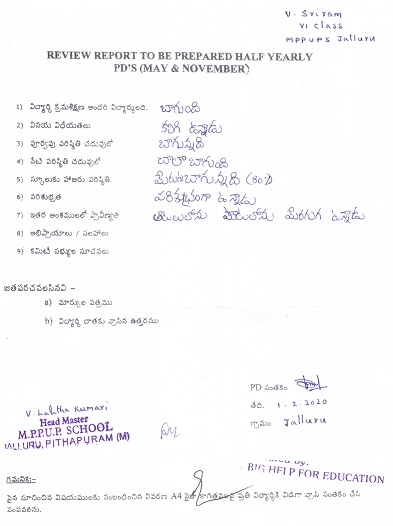 V. Sriram
VI class
MPPUPS Jalluru
REVIEW REPORT TO BE PREPARED HALF YEARLY
PD'S (MAY & NOVEMBER)
1) విద్యార్థి క్రమశిక్షణ అందరి విద్యార్థులది. బాగుంది
2) వినయ విధేయతలు కలిగి ఉన్నాడు
3) పూర్వపు పరిస్థితి చదువులో బాగున్నది
4) నేటి పరిస్థితి చదువులో చాలా బాగుంది
5) స్కూలుకు హాజరు పరిస్థితి.
6) పరిశుభ్రత పరిశుభ్రంగా ఉన్నాడు
7) ఇతర అంశములలో ప్రావీణ్యత ఉన్నాడు
8) అభిప్రాయాలు / సలహాలు
9) కమిటీ సభ్యుల సూచనలు
జతపరచవలసినవి :-
a) మార్కుల పత్రము
b) విద్యార్థి దాతకు వ్రాసిన ఉత్తరము
PD సంతకం
V. Lalitha Kumari
తేది. 1.2.2020
Head Master
M.P.P.U.P. SCHOOL
గ్రామం Jalluru
JALLURU, PITHAPURAM (M)
BIG HELP FOR EDUCATION
గమనిక:-
పైన సూచించిన విషయములకు సంబంధించిన వివరణ A4 సైజు కాగితముపై ప్రతి విద్యార్థికి విడిగా వ్రాసి సంతకం చేసి
పంపవలెను.